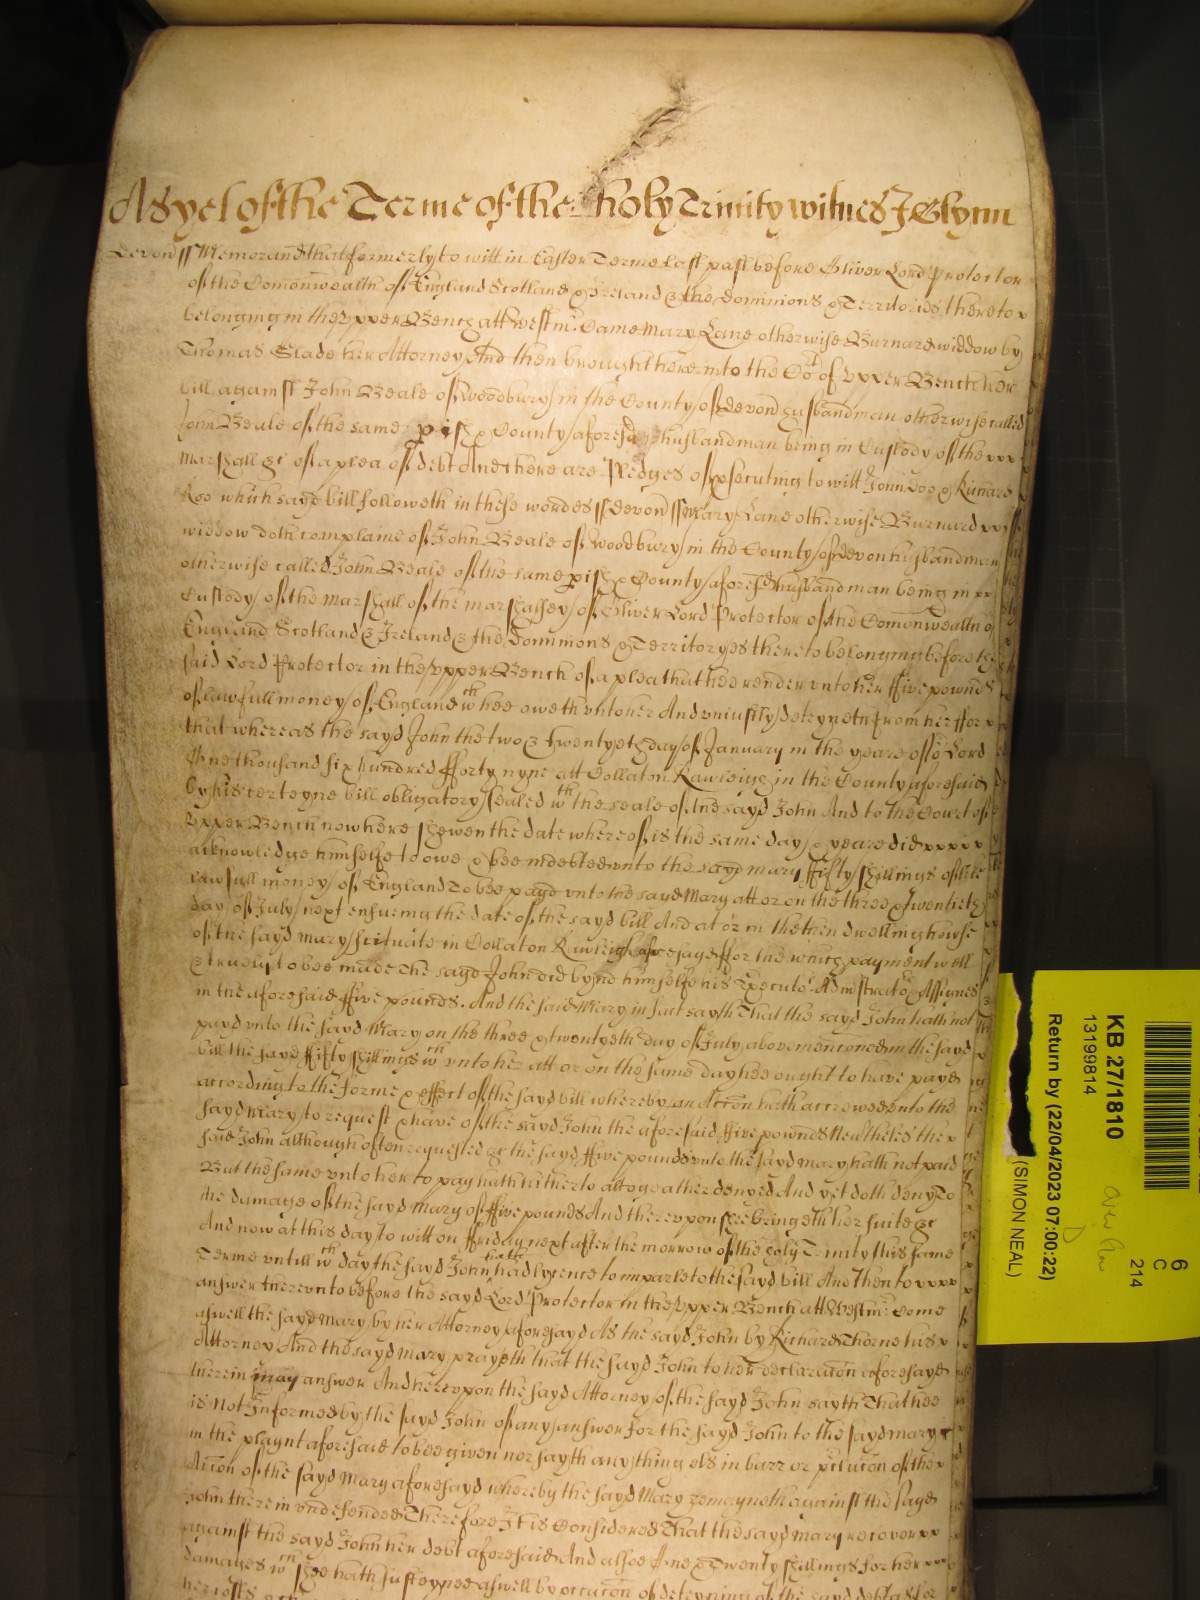 As yet of the Terme of the holy Trinity witnes J Glynn
Devon ss Memorand that formerly to witt in Easter Terme last past before Oliver Lord Protector
of the Comonwealth of England Scotland & Ireland & the Dominions & Territories thereto
belonging in the Upper Bench att Westmr. Came Mary Lane otherwise Burnard widdow by
Thomas Slade her Attorney And then brought here into the Cot of Upper Bench her
bill against John Beale of Woodbury in the County of Devon husbandman otherwise called
John Beale of the same pish & County aforesd husbandman being in Custody of the
Marshall &c of a plea of debt And there are Pledges of psecuting to witt John Doo & Richard
Roo which sayd bill followeth in these wordes ss Devon ss Mary Lane otherwise Burnard
widdow doth complaine of John Beale of Woodbury in the County of Devon husbandman
otherwise called John Beale of the same pish & County aforesd husbandman being in
Custody of the Marshall of the Marshalsey of Oliver Lord Protector of the Comonwealth of
England Scotland & Ireland & the Dominions & Territoryes thereto belonging before the
said Lord Protector in the Upper Bench of a plea that hee render unto her ffive pownds
of lawfull money of England wth hee oweth unto her And uniustly deteyneth from her ffor
that whereas the sayd John the two & twentyeth day of January in the yeare of or Lord
One thousand six hundred fforty nyne att Collaton Rawleigh in the County aforesaid
by his certeyne bill obligatory sealed wth the seale of the sayd John And to the Court of
Upper Bench now here shewen the date whereof is the same day & yeare did
acknowledge himselfe to owe & bee indebted unto the sayd Mary ffifty shillings of like
lawfull money of England To bee payd unto the sayd Mary att or on the three & twentieth
day of July next ensueing the date of the sayd bill And at or in the then dwelling house
of the sayd Mary scituate in Collaton Rawleigh aforesayd ffor the which payment well
& truely to bee made The sayd John did bynd himselfe his Executors Administrators & Assignes
in the aforesaid ffive pounds. And the said Mary in fact sayth That the sayd John hath not
payd unto the sayd Mary on the three & twentyeth day of July above mencioned in the sayd
bill the sayd ffifty shillings wch unto her att or on the same day hee ought to have payd
according to the forme & effect of the sayd bill whereby an Accon hath accrowed unto the
sayd Mary to request & have of the sayd John the aforesaid ffive pownds Neatheles the
said John although often requested &c the sayd ffive pounds unto the sayd Mary hath not paid
But the same unto her to pay hath hitherto altogeather denyed And yet doth deny To
the damage of the sayd Mary of ffive pounds And thereupon shee bringeth her suite &c
And now at this day to witt on ffriday next after the morrow of the holy Trinity this same
Terme untill wch day the sayd John hath had lycence to imparle to the sayd bill And then to
answer thereunto before the sayd Lord Protector in the Upper Bench att Westmr. Come
aswell the sayd Mary by her Attorney aforesayd As the sayd John by Richard Thorne his
Attorney And the sayd Mary prayeth that the sayd John to her declaracon aforesayd
therein may answer And hereupon the sayd Attorney of the sayd John sayth That hee
is not Informed by the sayd John of any answer for the sayd John to the sayd Mary
in the playnt aforesaid to bee given nor sayth any thing els in barr or pclucon of the
Accon of the sayd Mary aforesayd whereby the sayd Mary remayneth against the sayd
John therein undefended Therefore It is Considered That the sayd Mary recover
against the sayd John her debt aforesaid And alsoe One & Twenty shillings for her
damages wch shee hath susteyned aswell by occacon of deteyning of the sayd debt as for
her costs
KB 27/1810
13199814
Return by (22/04/2023 07:00:22)
(SIMON NEAL)
6
C
214
D